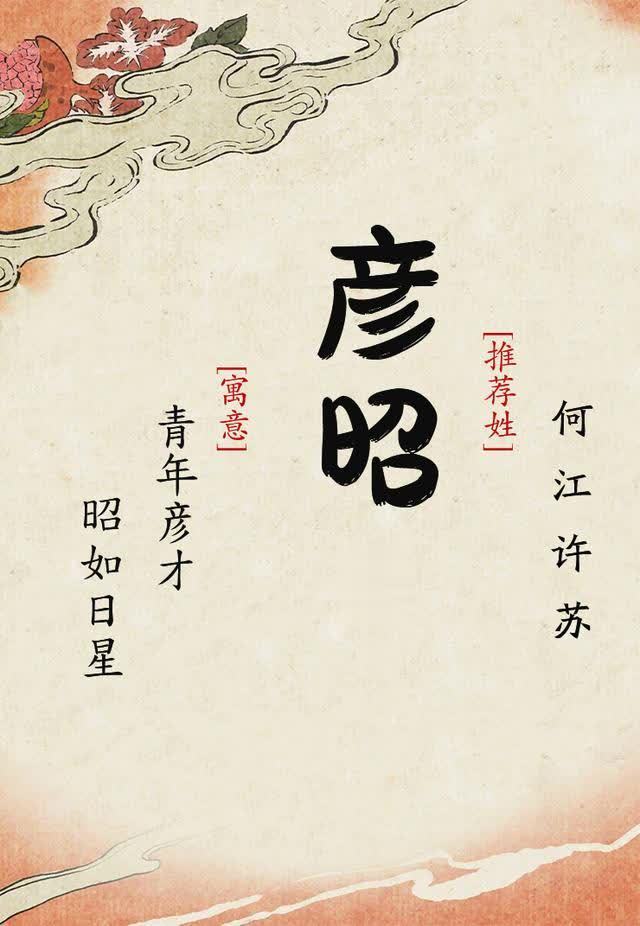 何江许苏
[推荐姓]
彦昭
[寓意]
青年彦才
昭如日星